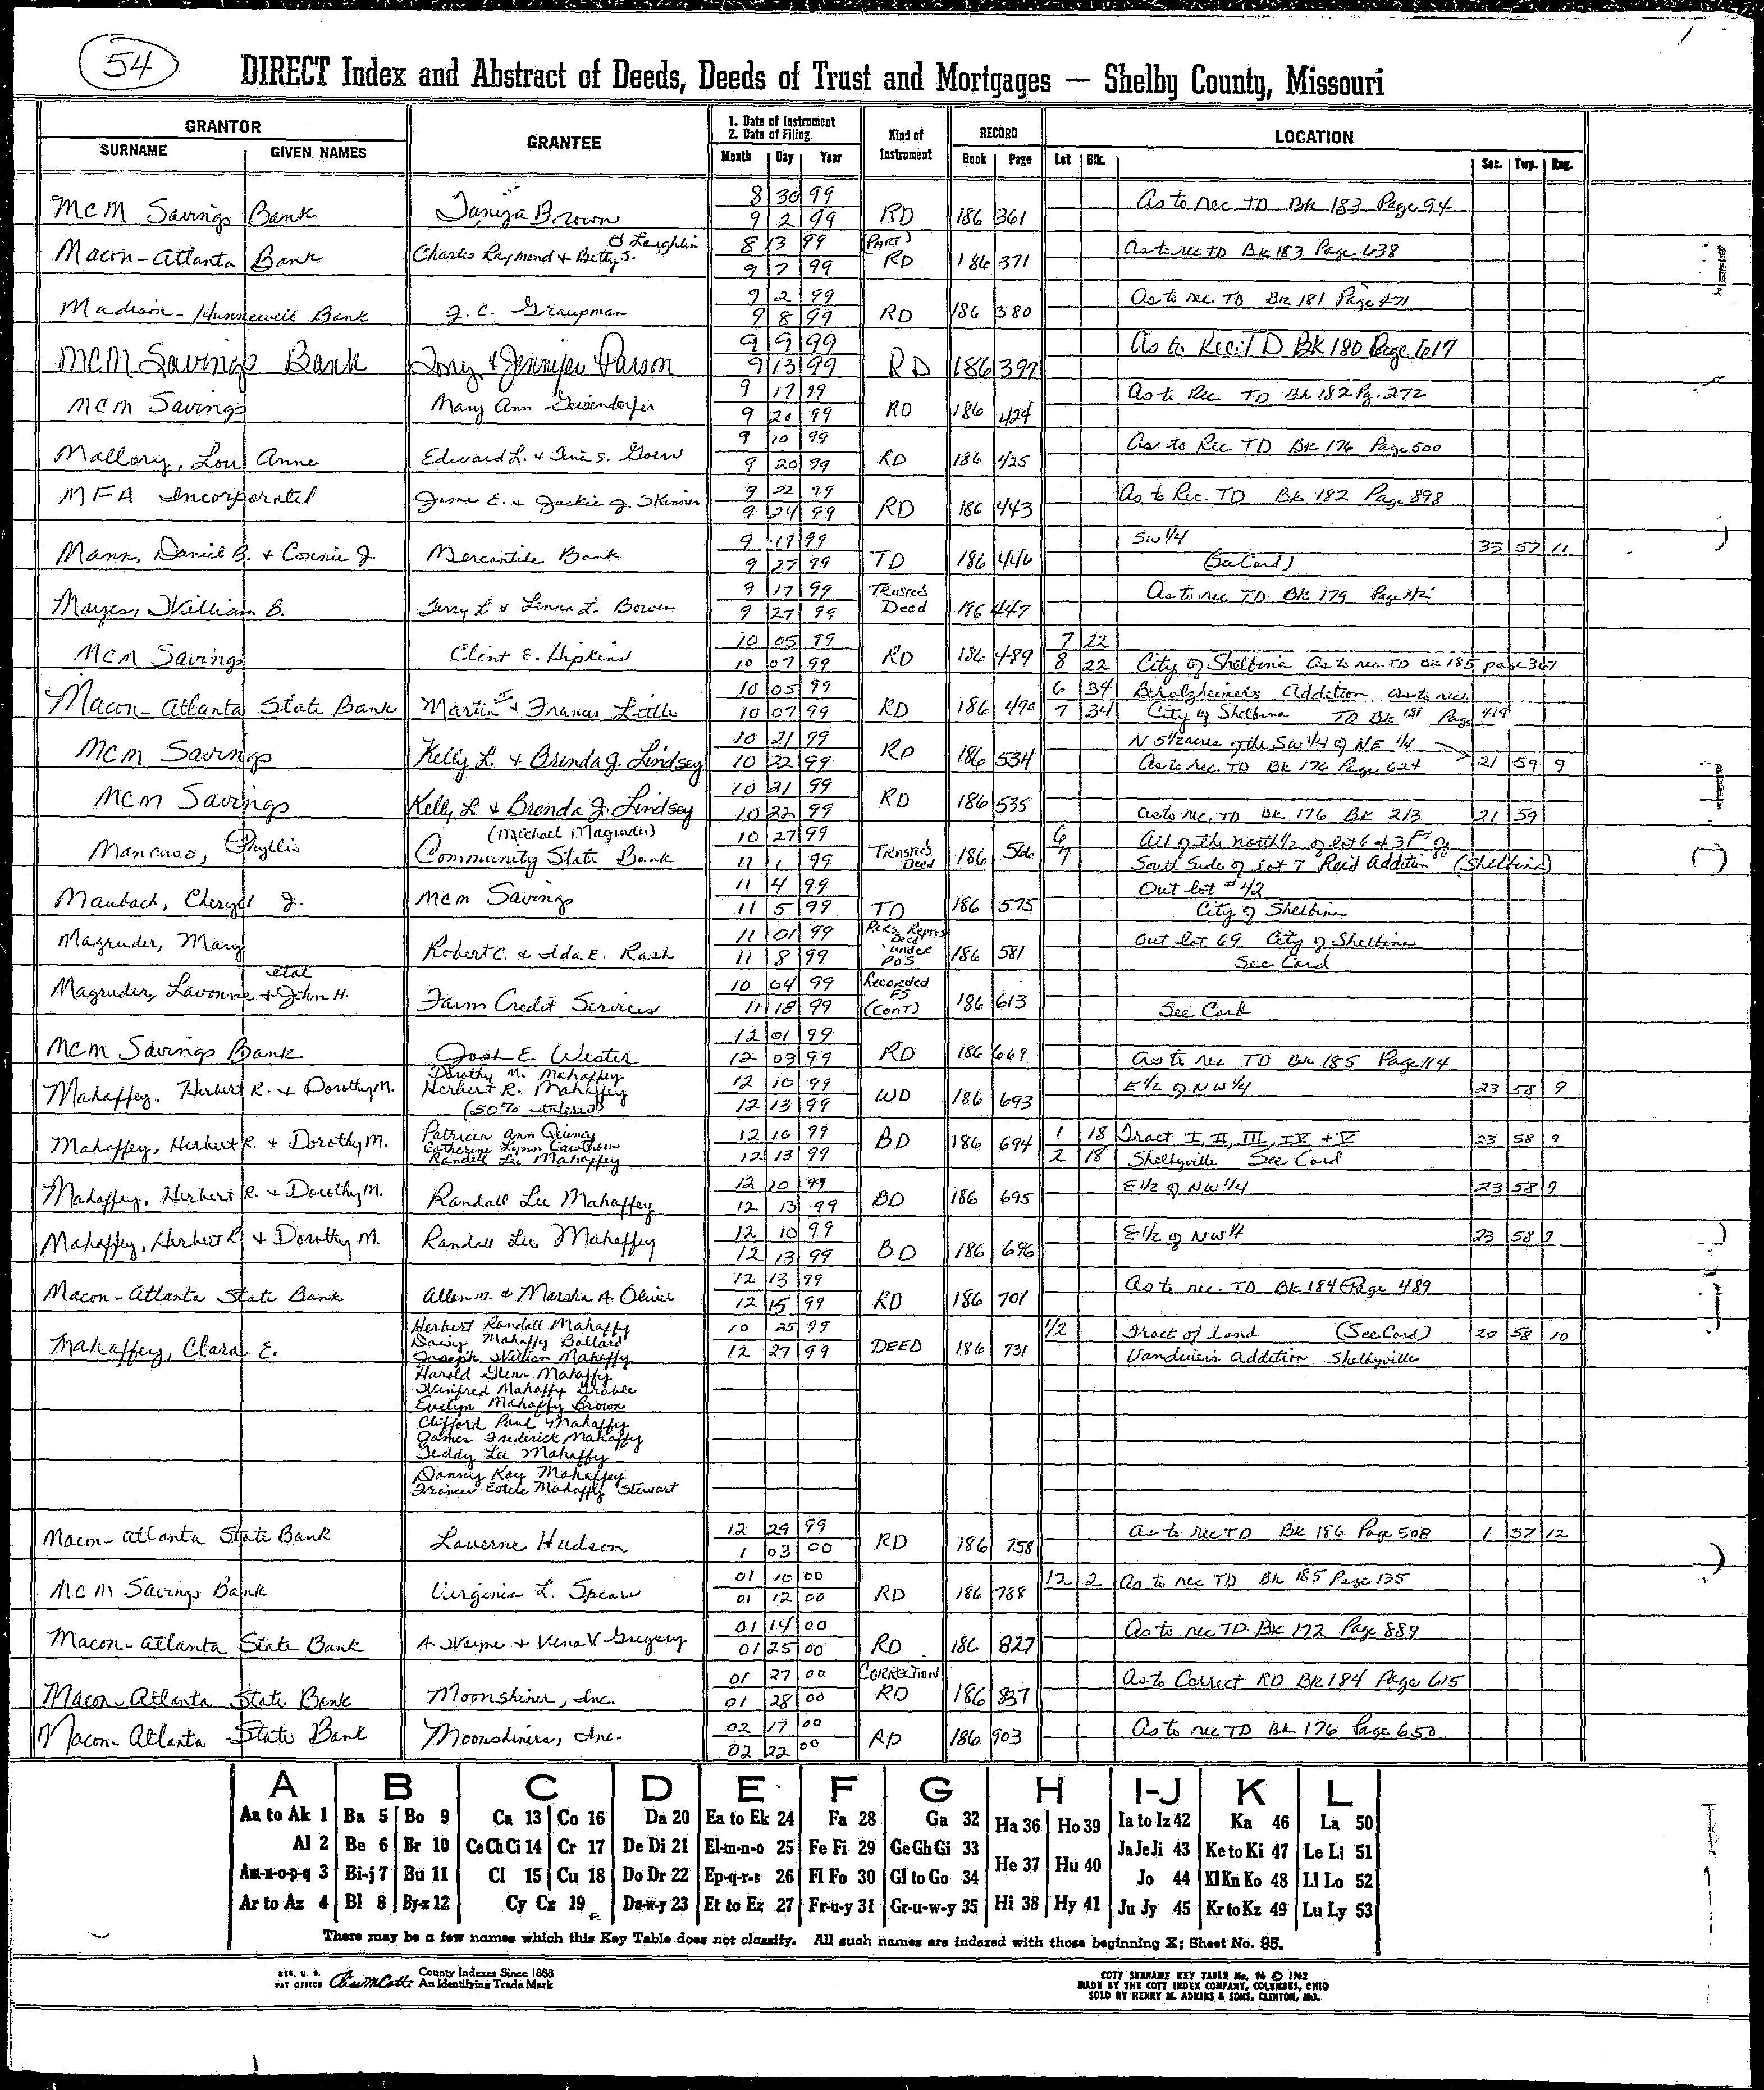 54
DIRECT Index and Abstract of Deeds, Deeds of Trust and Mortgages — Shelby County, Missouri
GRANTOR
SURNAME GIVEN NAMES
GRANTEE
1. Date of Instrument
2. Date of Filing
Month Day Year
Kind of Instrument
RECORD
Book Page
LOCATION
Lot Blk. Sec. Twp. Rng.
MCM Savings Bank Brown 8 30 99 9 2 99 RD 186 361 As to rec TD Bk 183 Page 94
Macon-Atlanta Bank Charles Raymond & Betty S. O'Laughlin 8 13 99 9 7 99 (PART) RD 186 371 As to rec TD Bk 183 Page 638
Madison-Hunnewell Bank J. C. Graupman 9 2 99 9 8 99 RD 186 380 As to rec. TD Bk 181 Page 471
MCM Savings Bank Tony & Jennifer Parson 9 9 99 9 13 99 RD 186 397 As to Rec. TD BK 180 Page 617
MCM Savings Mary Ann Geisendorfer 9 17 99 9 20 99 RD 186 424 As to Rec. TD Bk 182 Pg. 272
Mallory, Lou Anne Edward L. & Tina S. 9 10 99 9 20 99 RD 186 425 As to Rec TD Bk 176 Page 500
MFA Incorporated E. & Jackie J. Skinner 9 22 99 9 24 99 RD 186 443 As to Rec. TD Bk 182 Page 898
Mann, Daniel B. & Connie J. Mercantile Bank 9 17 99 9 27 99 TD 186 446 SW 1/4 (See Card) 33 57 11
Mayes, William B. Terry L. & L. Bowen 9 17 99 9 27 99 Trustee's Deed 186 447 As to rec TD Bk 179 Page
MCM Savings Clint E. Hipkins 10 05 99 10 07 99 RD 186 489 7 22 8 22 City of Shelbina As to rec. TD Bk 185 page 367
Macon-Atlanta State Bank Martin I & Frances Little 10 05 99 10 07 99 RD 186 490 6 34 7 34 Berolzheimer's Addition As to rec. City of Shelbina TD Bk 181 Page 419
MCM Savings Kelly L. & Brenda J. Lindsey 10 21 99 10 22 99 RD 186 534 N 5 1/2 acres of the SW 1/4 of NE 1/4 As to rec. TD Bk 176 Page 624 21 59 9
MCM Savings Kelly L & Brenda J. Lindsey 10 21 99 10 22 99 RD 186 535 As to rec. TD Bk 176 Bk 213 21 59
Mancuso, Phyllis (Michael Magruder) Community State Bank 10 27 99 11 1 99 Trustee's Deed 186 566 6 7 All of the north 1/2 of lot 6 & 3 Ft of South Side of Lot 7 Reid Addition (Shelbina)
Maubach, Cheryl J. MCM Savings 11 4 99 11 5 99 TD 186 575 Out lot #42 City of Shelbina
Magruder, Mary Robert C. & Ida E. Rash 11 01 99 11 8 99 Pers. Repres Deed under POS 186 581 Out lot 69 City of Shelbina See Card
Magruder, Lavonne & John H. etal Farm Credit Services 10 04 99 11 18 99 Recorded FS (CONT) 186 613 See Card
MCM Savings Bank Josh E. Wester 12 01 99 12 03 99 RD 186 669 As to rec TD Bk 185 Page 114
Mahaffey. Herbert R. & Dorothy M. Dorothy M. Mahaffey Herbert R. Mahaffey (50% interest) 12 10 99 12 13 99 WD 186 693 E 1/2 of NW 1/4 23 58 9
Mahaffey, Herbert R. & Dorothy M. Patricia Ann Quincy Catherine Lynn Cawthon Randall Lee Mahaffey 12 10 99 12 13 99 BD 186 694 1 18 2 18 Tract I, II, III, IV & V Shelbyville See Card 23 58 9
Mahaffey, Herbert R. & Dorothy M. Randall Lee Mahaffey 12 10 99 12 13 99 BD 186 695 E 1/2 of NW 1/4 23 58 9
Mahaffey, Herbert R. & Dorothy M. Randall Lee Mahaffey 12 10 99 12 13 99 BD 186 696 E 1/2 of NW 1/4 23 58 9
Macon-Atlanta State Bank Allen M. & Marsha A. Oliver 12 13 99 12 15 99 RD 186 701 As to rec. TD Bk 184 Page 489
Mahaffey, Clara E. Herbert Randall Mahaffy 10 25 99 12 27 99 DEED 186 731 1/2 Tract of Land (See Card) 20 58 10
Daisy Mahaffy Ballard Vandivier's Addition Shelbyville
Joseph William Mahaffy
Harold Glenn Mahaffy
Winifred Mahaffy Grable
Evelyn Mahaffy Brown
Clifford Paul Mahaffy
James Frederick Mahaffy
Teddy Lee Mahaffy
Danny Ray Mahaffey
Frances Estele Mahaffy Stewart
Macon-Atlanta State Bank Laverne Hudson 12 29 99 1 03 00 RD 186 758 As to rec TD Bk 186 Page 508 1 57 12
MCM Savings Bank Virginia L. Spears 01 10 00 01 12 00 RD 186 788 12 2 As to rec TD Bk 185 Page 135
Macon-Atlanta State Bank A. Wayne & Vena V. Gregory 01 14 00 01 25 00 RD 186 827 As to rec TD Bk 172 Page 889
Macon-Atlanta State Bank Moonshiner, Inc. 01 27 00 01 28 00 CORRECTION RD 186 837 As to Correct RD Bk 184 Page 615
Macon-Atlanta State Bank Moonshiners, Inc. 02 17 00 02 22 00 RD 186 903 As to rec TD Bk 176 Page 650
A B C D E F G H I-J K L
Aa to Ak 1 Ba 5 Bo 9 Ca 13 Co 16 Da 20 Ea to Ek 24 Fa 28 Ga 32 Ha 36 Ho 39 Ia to Iz 42 Ka 46 La 50
Al 2 Be 6 Br 10 Ce Ch Ci 14 Cr 17 De Di 21 El-m-n-o 25 Fe Fi 29 Ge Gh Gi 33 He 37 Hu 40 Ja Je Ji 43 Ke to Ki 47 Le Li 51
Am-n-o-p-q 3 Bi-j 7 Bu 11 Cl 15 Cu 18 Do Dr 22 Ep-q-r-s 26 Fl Fo 30 Gl to Go 34 Jo 44 Kl Kn Ko 48 Ll Lo 52
Ar to Az 4 Bl 8 By-z 12 Cy Cz 19 Du-w-y 23 Et to Ez 27 Fr-u-y 31 Gr-u-w-y 35 Hi 38 Hy 41 Ju Jy 45 Kr to Kz 49 Lu Ly 53
There may be a few names which this Key Table does not classify. All such names are indexed with those beginning X: Sheet No. 85.
REG. U. S. PAT OFFICE County Indexes Since 1888 An Identifying Trade Mark
COTT SURNAME KEY TABLE No. 96 © 1962
MADE BY THE COTT INDEX COMPANY, COLUMBUS, OHIO
SOLD BY HENRY M. ADKINS & SONS, CLINTON, MO.